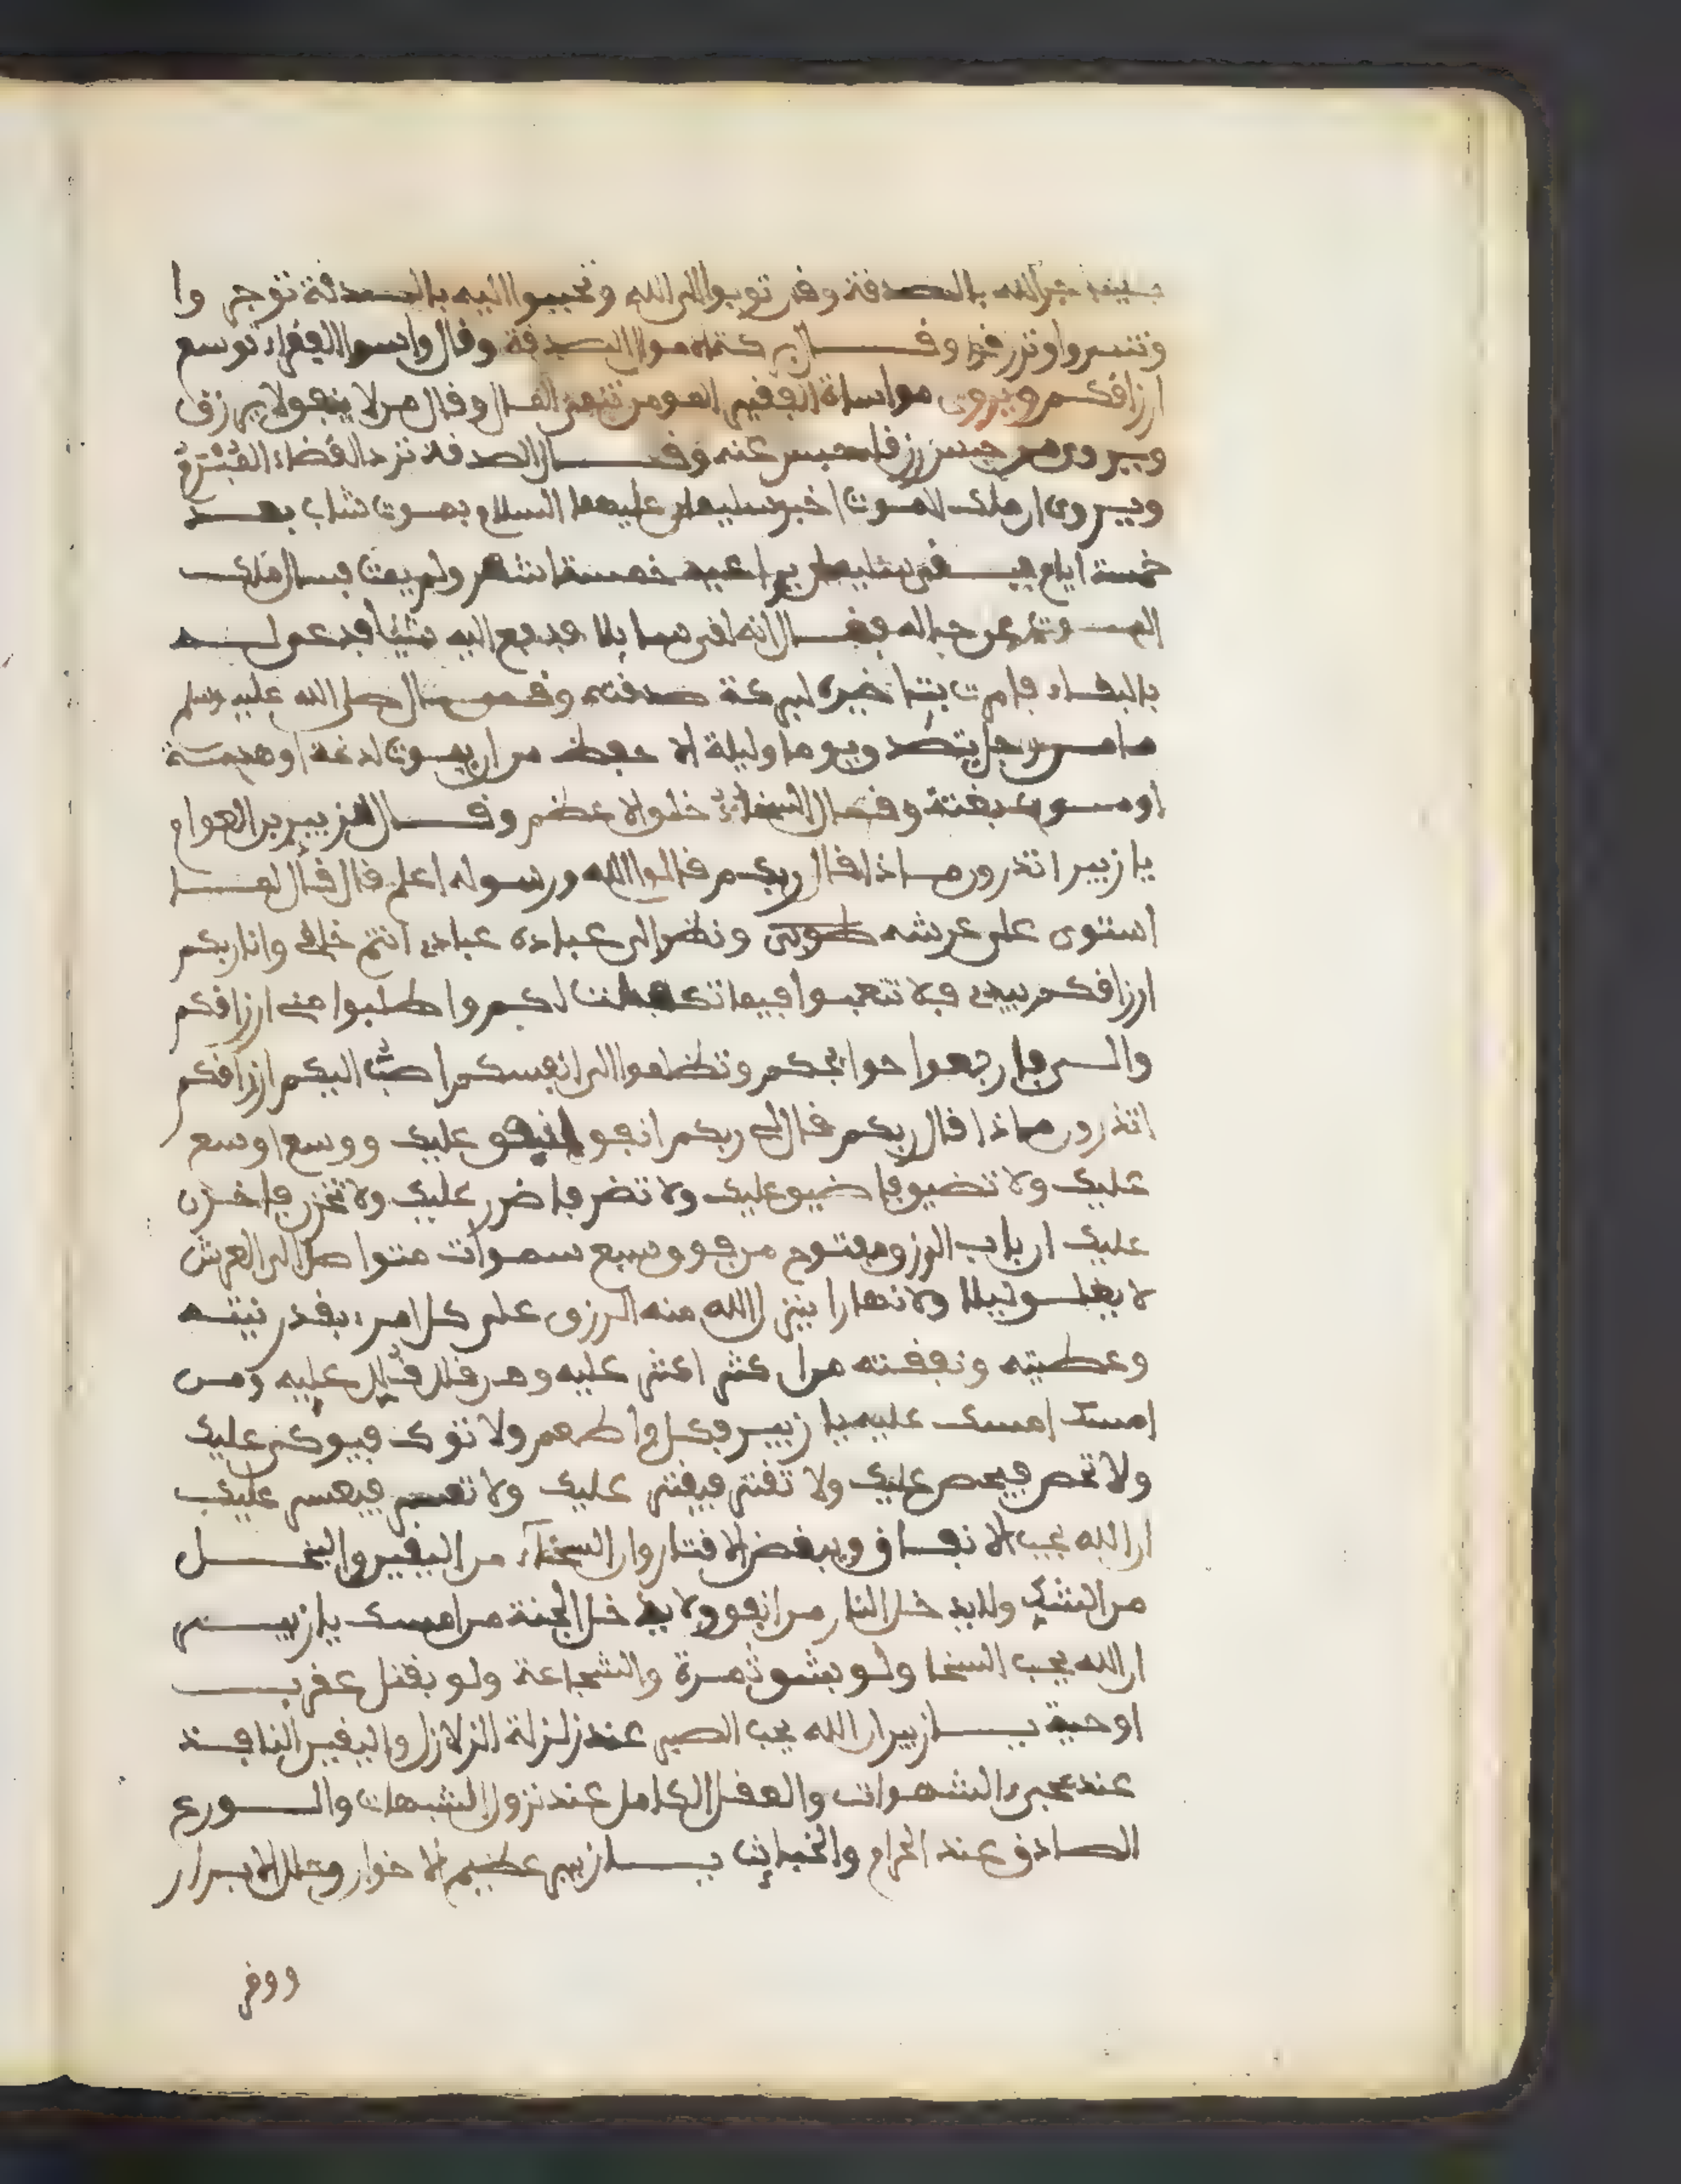 الله بالصدفة وفر توبوا الى الله وتحببوا اليه بالصدفة توجروا
وتنصروا وترزفوا وفال بركتاه موال الصدفة وفال واسوا الففراء توسع
ارزافكم ويروى مواساة الففير المومن وفال من لا ينبق لا يرزق
ويروى من حبس رزفا حبس عنه وفال الصدفة ترد الفضاء
ويروى ان ملك الموت اخبر سليمان عليهما السلام بموت شاب بعد
خمسة ايام خمسة اشهر ولم يمت فسال ملك
الموت عن حاله ففال انه لفى سايلا فدفع اليه شيئا فدعى له
بالبفاء فامرت بتاخيره لبركة صدفته وفال صلى الله عليه وسلم
ما من رجل يتصدق يوما وليلة الا حفظ من ان يموت لدغة او هدمة
او موت بغتة وفال السخاء خلق الله الاعظم وفال للزبير بن العوام
يا زبير اتدرون ماذا فال ربكم فالوا الله ورسوله اعلم فال فال لما
استوى على عرشه ونظر الى عباده عبادى انتم خلفى وانا ربكم
ارزافكم بيدى فلا تتعبوا فيما تكفلت لكم واطلبوا منى ارزافكم
والى فارفعوا حوايجكم انفسكم اصب اليكم ارزافكم
اتدرون ماذا فال ربكم فال لى ربكم انفق انفق عليك ووسع اوسع
عليك ولا تضيق فاضيق عليك ولا تضر فاضرر عليك ولا تخزن فاخزن
عليك ان باب الرزق مفتوح من فوق سبع سموات متواصل الى العرش
لا يغلق ليلا ولا نهارا ينزل الله منه الرزق على كل امرء بفدر نيته
وعطيته ونففته من اكثر اكثر عليه ومن فلل فلل عليه ومن
امسك امسك عليه يا زبير فكل واطعم ولا توك فيوكى عليك
ولا تحص فيحصى عليك ولا تفتر فيفتر عليك ولا تعسر فيعسر عليك
ان الله يحب الانفاق ويبغض الافتار وان السخاء من اليفين والبخل
من الشك ولا يدخل النار من انفق ولا يدخل الجنة من امسك يا زبير
ان الله يحب السخا ولو بشق ثمرة والشجاعة ولو بفتل عفرب
او حية يا زبير ان الله يحب الصبر عند زلزلة الزلازل واليفين النافذ
عند مجىء الشهوات والعفل الكامل عند نزول الشبهات والورع
الصادق عند الحرام والخبايث يا زبير عظيم الاخوان وجلل الابرار
ووفر